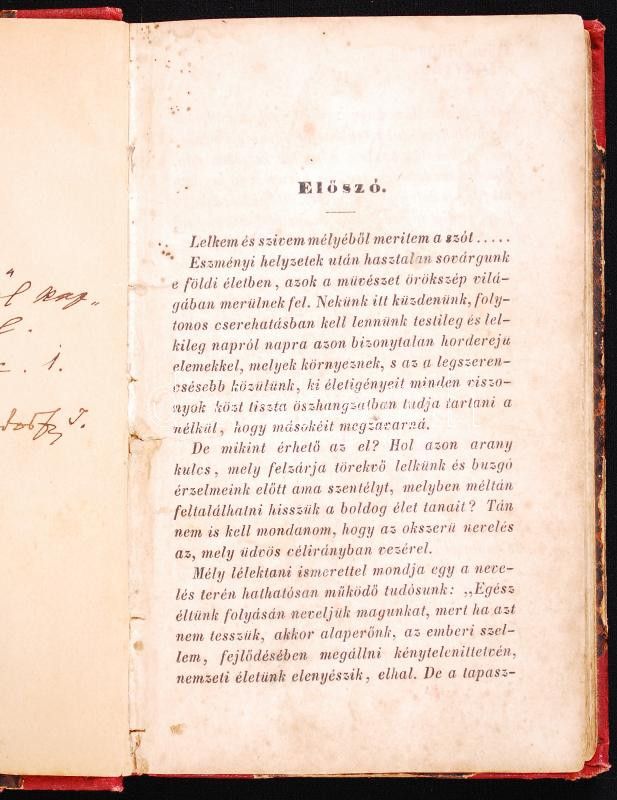 Előszó.
Lelkem és szivem mélyéből meritem a szót.....
Eszményi helyzetek után hasztalan sovárgunk
e földi életben, azok a müvészet örökszép vilá-
gában merülnek fel. Nekünk itt küzdenünk, foly-
tonos cserehatásban kell lennünk testileg és lel-
kileg napról napra azon bizonytalan hordereju
elemekkel, melyek környeznek, s az a legszeren-
csésebb közülünk, ki életigényeit minden viszo-
nyok közt tiszta öszhangzatban tudja tartani a
nélkül, hogy másokéit megzavarná.
De mikint érhető az el? Hol azon arany
kulcs, mely felzárja törekvő lelkünk és buzgó
érzelmeink előtt ama szentélyt, melyben méltán
feltalálhatni hisszük a boldog élet tanait? Tán
nem is kell mondanom, hogy az okszerü nevelés
az, mely üdvös célirányban vezérel.
Mély lélektani ismerettel mondja egy a neve-
lés terén hathatósan működő tudósunk: „Egész
éltünk folyásán neveljük magunkat, mert ha azt
nem tesszük, akkor alaperőnk, az emberi szel-
lem, fejlődésében megállni kénytelenittetvén,
nemzeti életünk elenyészik, elhal. De a tapasz-